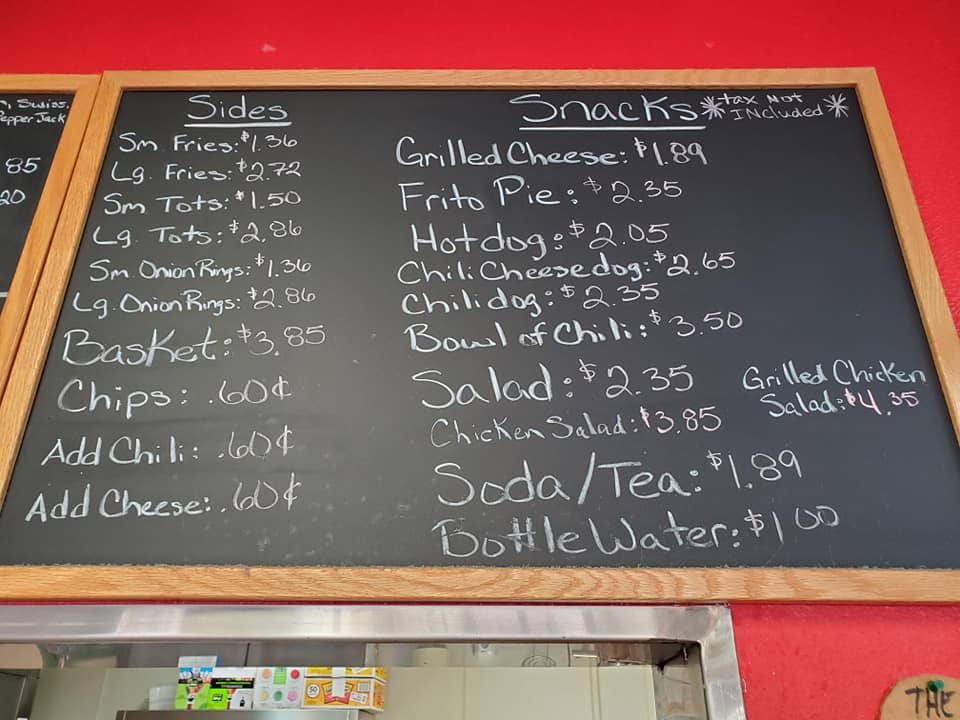 Swiss,
Pepper Jack
85
20
Sides
Sm Fries: $1.36
Lg. Fries: $2.72
Sm Tots: $1.50
Lg. Tots: $2.86
Sm. Onion Rings: $1.36
Lg. Onion Rings: $2.86
Basket: $3.85
Chips: .60¢
Add Chili: .60¢
Add Cheese: .60¢
Snacks *tax NOT INCluded*
Grilled Cheese: $1.89
Frito Pie: $2.35
Hotdog: $2.05
Chili Cheesedog: $2.65
Chilidog: $2.35
Bowl of Chili: $3.50
Salad: $2.35
Chicken Salad: $3.85
Grilled Chicken
Salad: $4.35
Soda/Tea: $1.89
Bottle Water: $1 00
THE